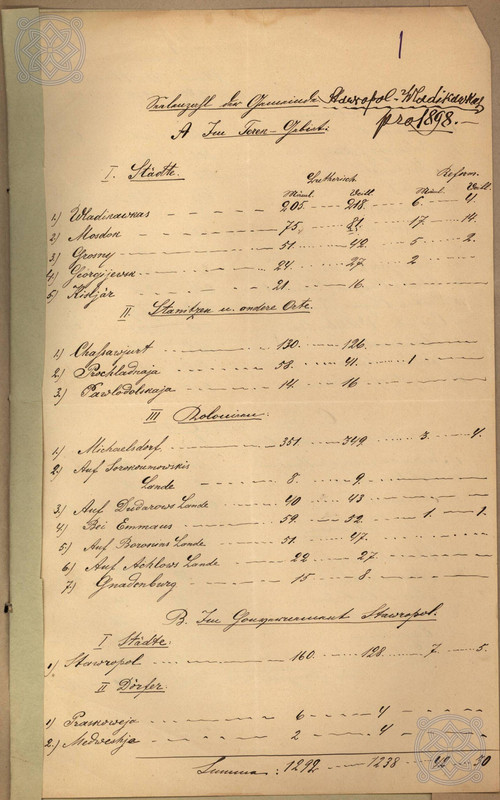 1
Seelenzahl der Gemeinde Stawropol-Wladikawkas
pro 1898.
A Im Terek-Gebiet:
I. Städte. Lutherisch Reform.
Männl. Weibl. Männl. Weibl.
1.) Wladikawkas 205. 218. 6. 4.
2.) Mosdok 75. 81. 17. 14.
3.) Grosny 51. 42. 5. 2.
4.) Georgijewsk 24. 27. 2
5.) Kisljär 21. 16.
II. Stanitzen u. andere Orte.
1.) Chassawjurt 130. 126.
2.) Prochladnaja 58. 41. 1.
3.) Pawlodolskaja 14. 16
III Kolonien:
1.) Michaelsdorf 351. 349. 3. 4.
2.) Auf
Lande 8. 9.
3.) Auf Dudarows Lande 40 43
4.) Bei Emmaus 59. 32. 1. 1.
5.) Auf Lande 51. 47.
6.) Auf Lande 22 27.
7.) Gnadenburg 15 8.
B. Im Gouvernement Stawropol.
I Städte:
1.) Stawropol 160. 128. 7. 5.
II Dörfer:
1.) Praskoweja 6 4
2.) Medweshje 2 4
Summa: 1292 1238 42 30